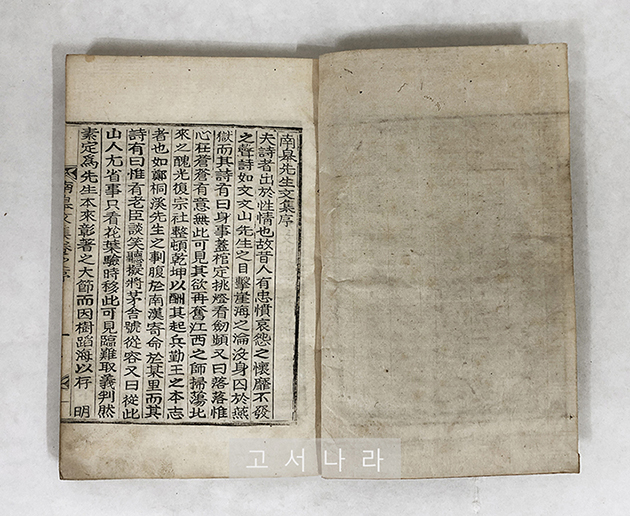 南皐先生文集序
夫詩者出於性情也故昔人有忠憤哀怨之懷靡不發
之聲詩如文文山先生之目擊崖海之淪沒身囚於燕
獄而其詩有曰身事蓋棺定挑燈看劒頻又曰落落惟
心在蒼蒼有意無此可見其欲再奮江西之師掃蕩北
來之醜光復宗社整頓乾坤以酬其起兵勤王之本志
者也如鄭桐溪先生之剚腹於南漢寄命於某里而其
詩有曰惟有老臣談笑聽擬將茅舍號從容又曰從此
山人尤省事只看花葉驗時移此可見臨難取義判然
素定爲先生本來彰著之大節而因樹蹈海以存 明
南皐文集 序
고서나라